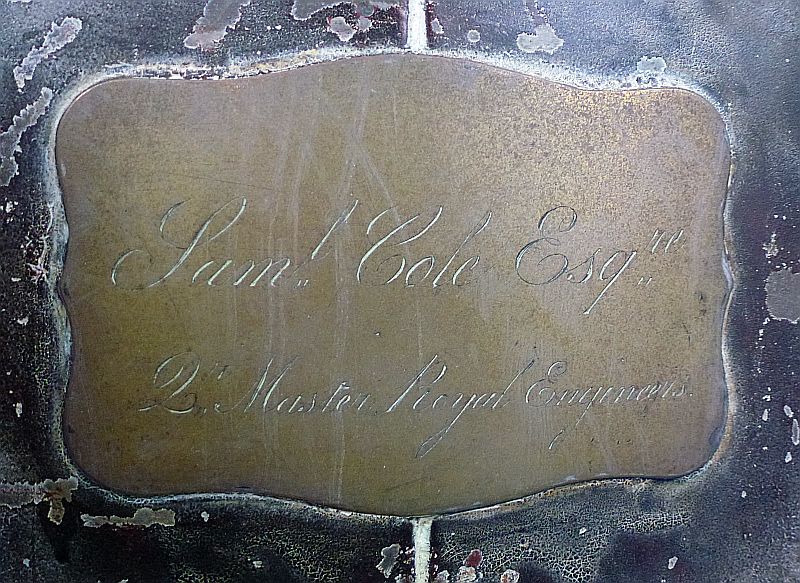 Sam.l Cole Esq.re
Qr. Master Royal Engineers.